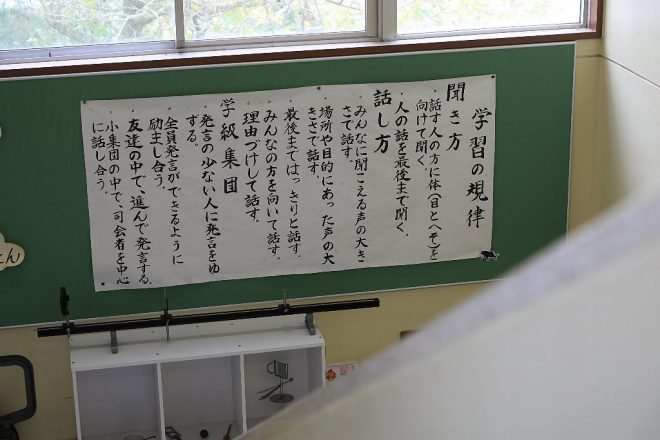 学習の規律
聞き方
話す人の方に体(目とへそ)を
向けて聞く。
人の話を最後まで聞く。
話し方
みんなに聞こえる声の大き
さで話す。
場所や目的にあった声の大
きさで話す。
最後まではっきりと話す。
みんなの方を向いて話す。
理由づけして話す。
学級集団
発言の少ない人に発言をゆ
する。
全員発言ができるように
励まし合う。
友達の中で、進んで発言する。
小集団の中で、司会者を中心
に話し合う。